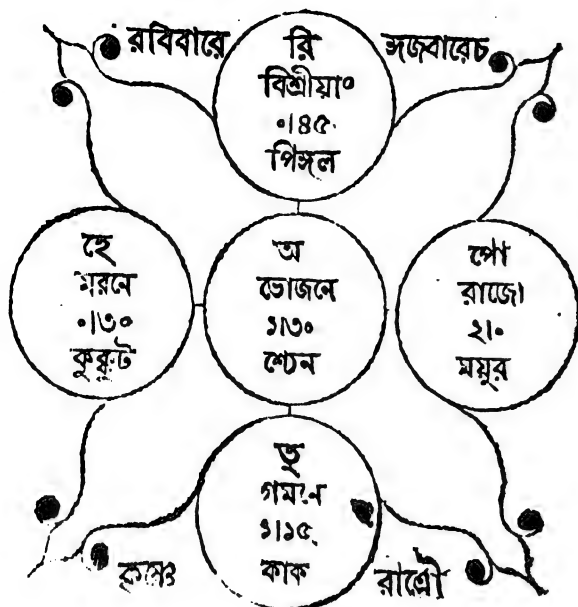 রবিবারে
রি
বিশ্রীয়া০
০।৪৫
পিঙ্গল
হে
মরনে
০।৩০
কুক্কুট
অ
ভোজনে
১।৩০
শ্যেন
পো
রাজ্যে
২।০
ময়ুর
গমনে
১।১৫
কাক
কৃষ্ণে
রাত্রৌ